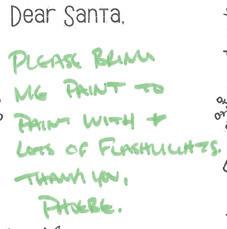 Dear Santa,
PLEASE BRING
ME PAINT TO
PAINT WITH +
LOTS OF FLASHLIGHTS.
THANK YOU,
PHOEBE.